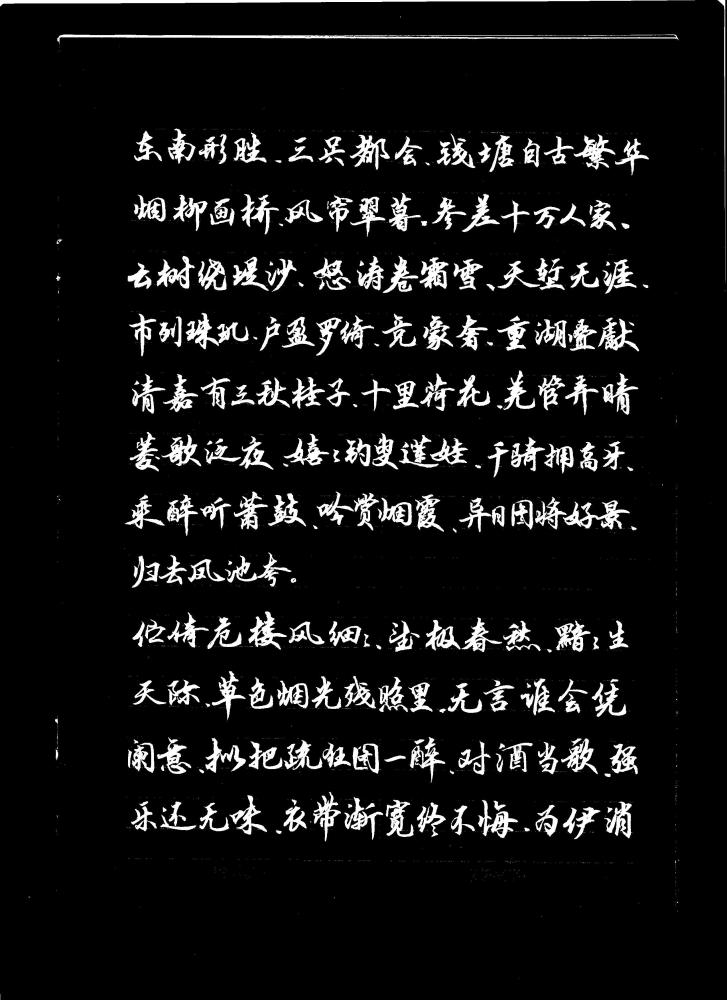 东南形胜、三吴都会、钱塘自古繁华
烟柳画桥、风帘翠暮。参差十万人家、
云树绕堤沙、怒涛卷霜雪、天堑无涯、
市列珠玑、户盈罗绮、竞豪奢、重湖叠巘
清嘉有三秋桂子、十里荷花、羌管弄晴
菱歌泛夜、嬉〻钓叟莲娃、千骑拥高牙、
乘醉听萧鼓、吟赏烟霞、异日图将好景、
归去凤池夸。
伫倚危楼风细〻、望极春愁、黯〻生
天际、草色烟光残照里、无言谁会凭
阑意、拟把疏狂图一醉、对酒当歌、强
乐还无味、衣带渐宽终不悔、为伊消